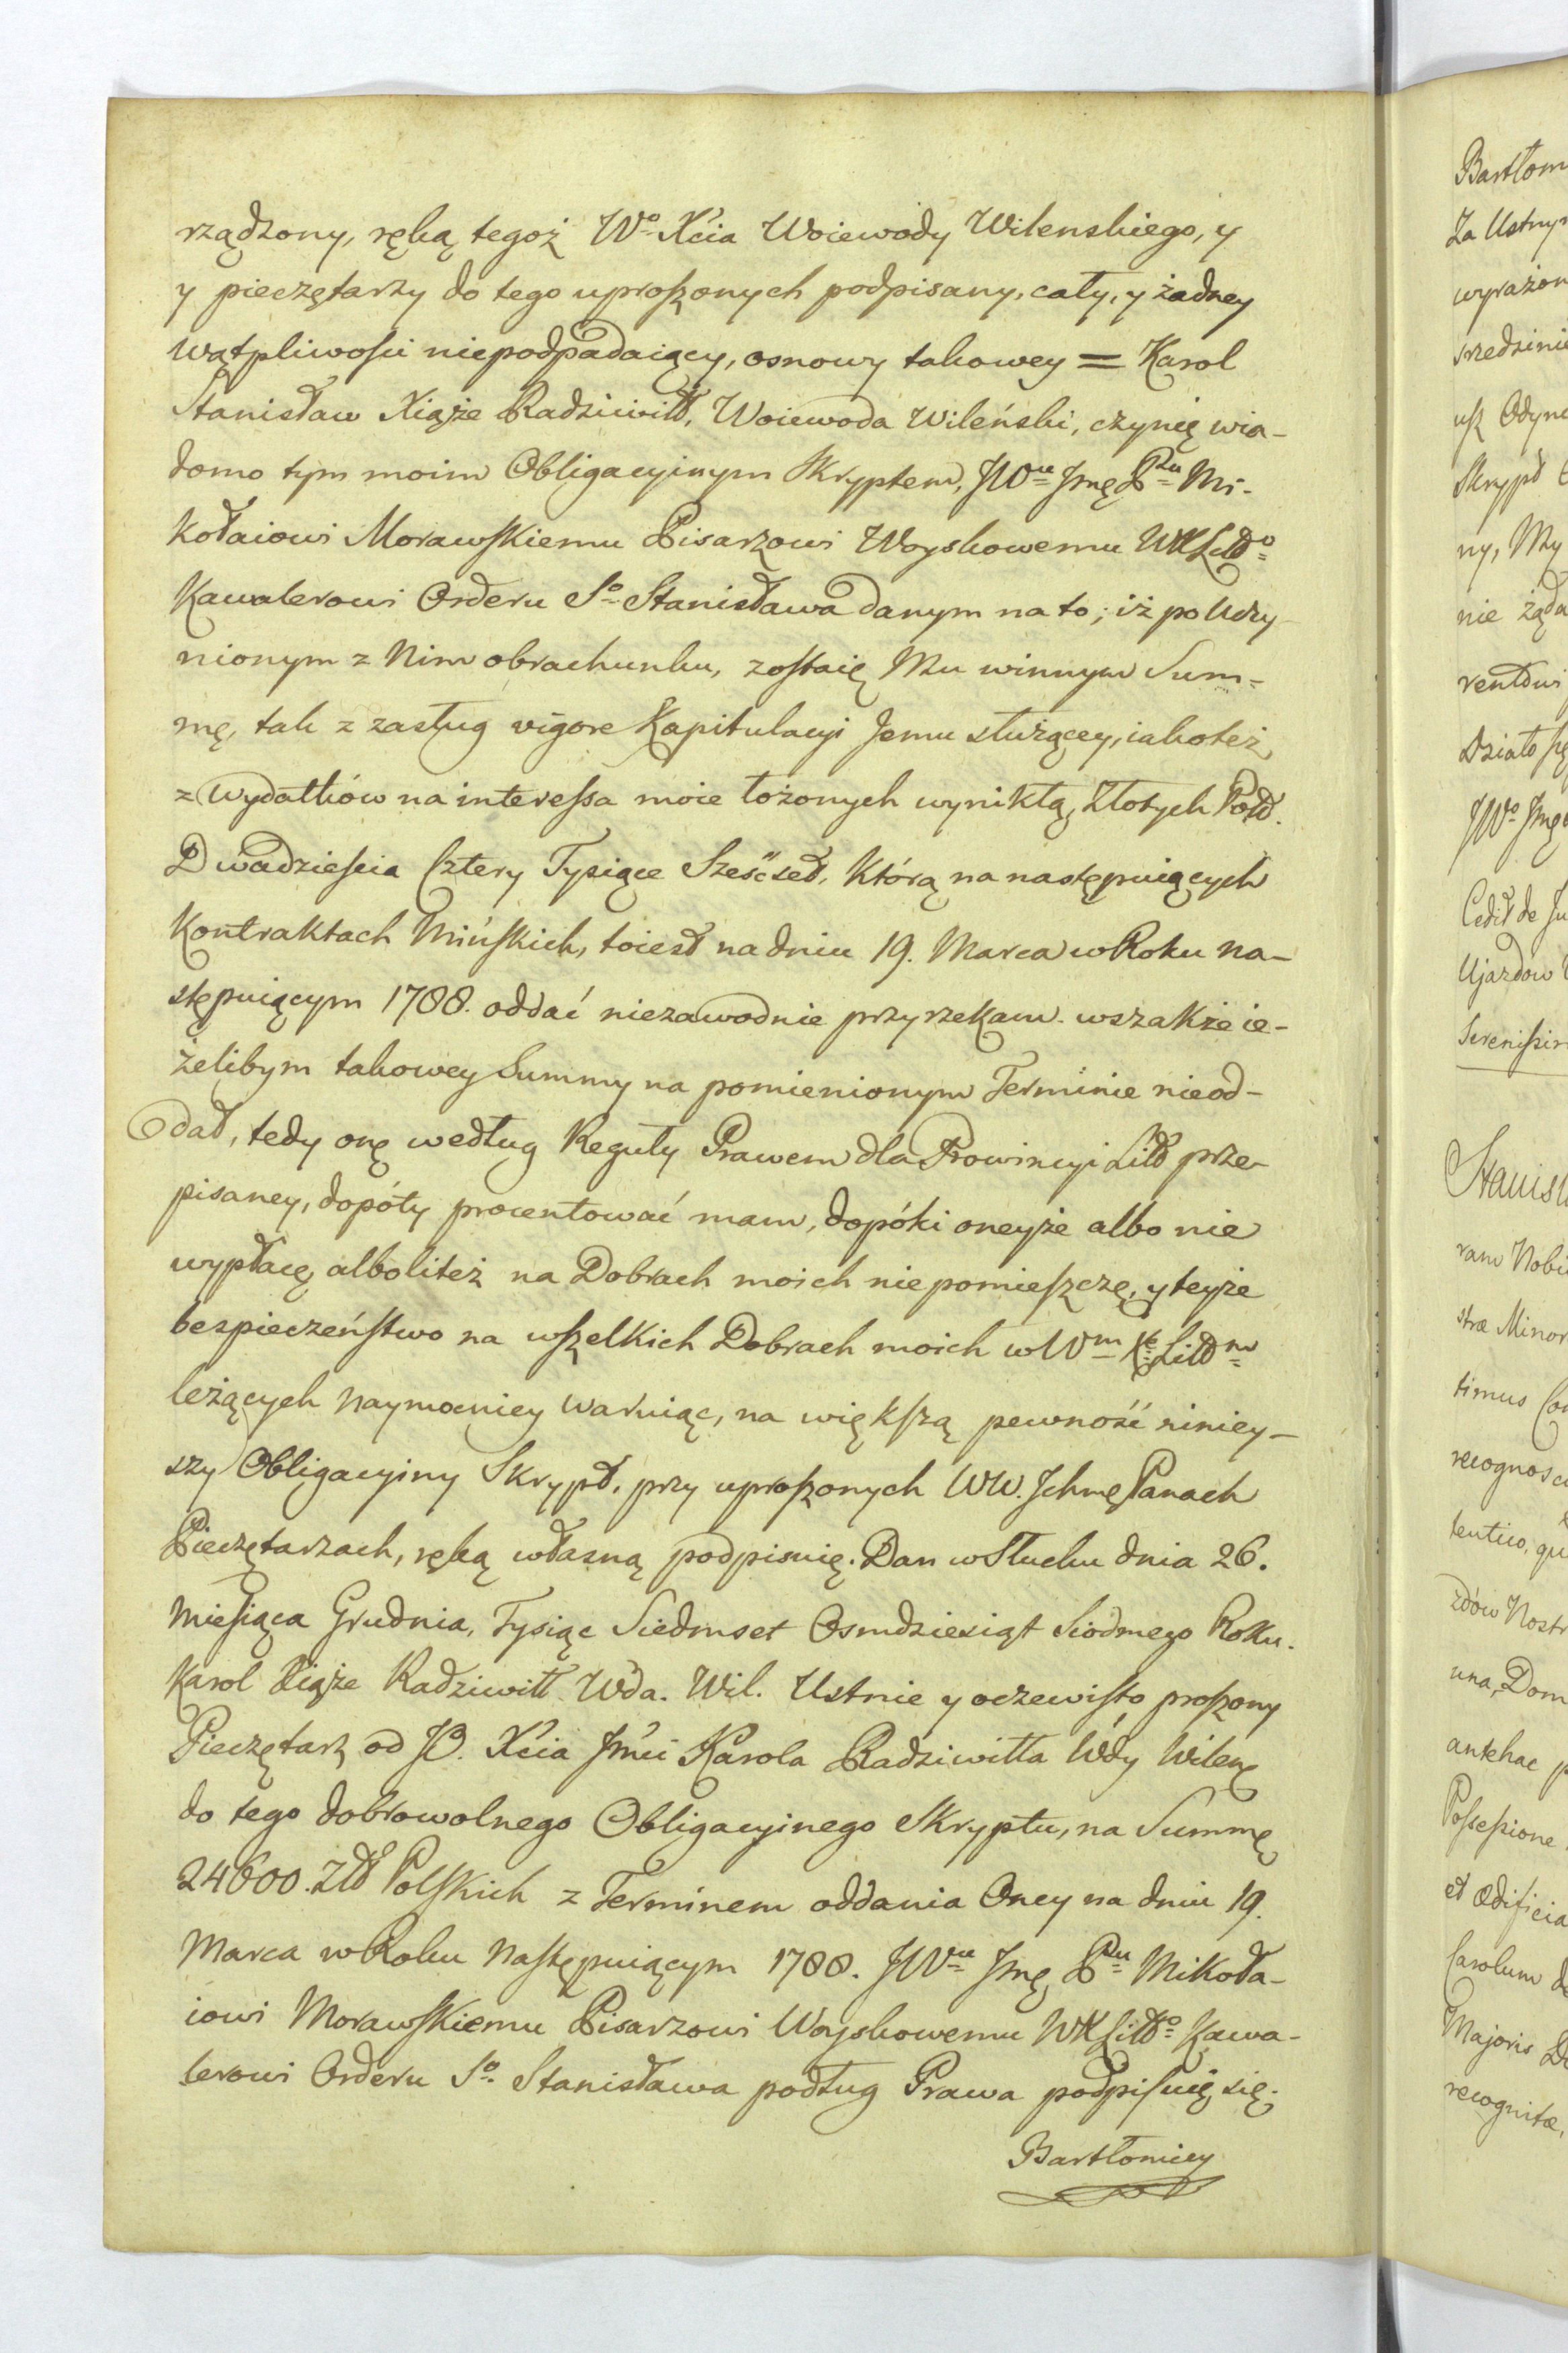 rządzony, ręką tegoż Wo Xcia Woiewody Wilenskiego, y
y pieczętarzy do tego uproszonych podpisany, cały, y żadney
wątpliwości niepodpadaiący, osnowy takowey = Karol
Stanisław Xiąże Radziwiłł, Woiewoda Wileński, czynię wia-
domo tym moim Obligacyinym Skryptem, JWu Jmę Pnu Mi-
kołaiowi Morawskiemu Pisarzowi Woyskowemu WXLitto
Kawalerowi Orderu So Stanisława danym na to; iż po Uczy-
nionym z Nim obrachunku, zostaię Mu winnym Sum-
mę, tak z zasług vigore Kapitulacyi Jemu służącey, iako też
z wydatków na interessa moie łożonych wynikłą, Złotych Pold.
Dwadzieścia Cztery Tysiące Sześćset, którą na następuiących
Kontraktach Mińskich, toiest na dniu 19. Marca w Roku na-
stępuiącym 1788. oddać niezawodnie przyrzekam. wszakże ie-
żelibym takowey Summy na pomienionym Terminie nieod-
dał, tedy onę według Reguły Prawem dla Prowincyi Litt prze-
pisaney, dopóty procentować mam, dopóki oneyże albo nie
wypłacę, albolitéż na Dobrach moich nie pomieszczę, y teyże
bespieczeństwo na wszelkich Dobrach moich w Wm X: Littm
leżących naymocniey waruiąc, na większą pewność niniey-
szy Obligacyiny Skrypt, przy uproszonych WW. Ichmę Panach
Pieczętarzach, ręką własną podpisuię. Dan w Słucku dnia 26.
Miesiąca Grudnia, Tysiąc Siedmset Osmdziesiąt Siódmego Roku.
Karol Xiąże Radziwiłł Wda. Wil. Ustnie y oczewisto proszony
Pieczętarz od JO. Xcia Jmci Karola Radziwiłła Wdy Wileń
do tego dobrowolnego Obligacyinego Skryptu, na Summę
24600. Złł Polskich z Terminem oddania Oney na dniu 19.
Marca w Roku Następuiącym 1788. JWu Jmę Pnu Mikoła-
iowi Morawskiemu Pisarzowi Woyskowemu WXLitto Kawa-
lerowi Orderu So. Stanisława podług Prawa podpisuię się.
Bartłomiey
Bartłom
Za Ustny
wyrażon
srzedzini
usz Odyn
Skrypt
ny, My
nie żąda
rentowi
Działo się
JWo Jmę
Cedit de Ju
Ujazdow
Serenissi
Stanisl
ram Nobi
stræ Minor
timus Co
recognosc
tentico, qu
zdów Nostr
una, Dom
antehac p
Possessione
et ædificia
Carolum d
Majoris D
recognitæ,